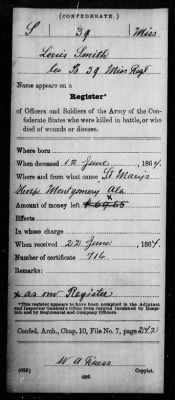 (CONFEDERATE.)
S 39 Miss
Louis Smith
Co B 39 Miss Regt
Name appears on a
Register*
of Officers and Soldiers of the Army of the Con-
federate States who were killed in battle, or who
died of wounds or disease.
Where born
When deceased 12 June, 1864
Where and from what cause St Mary's
Hosp. Montgomery Ala
Amount of money left
Effects
In whose charge
When received 22 June, 1864.
Number of certificate 716
Remarks:
x as on Register
*This register appears to have been compiled in the Adjutant
and Inspector General's Office from returns furnished by Hospi-
tals and by Regimental and Company Officers.
Confed. Arch., Chap. 10, File No. 7, page 242
Copyist.